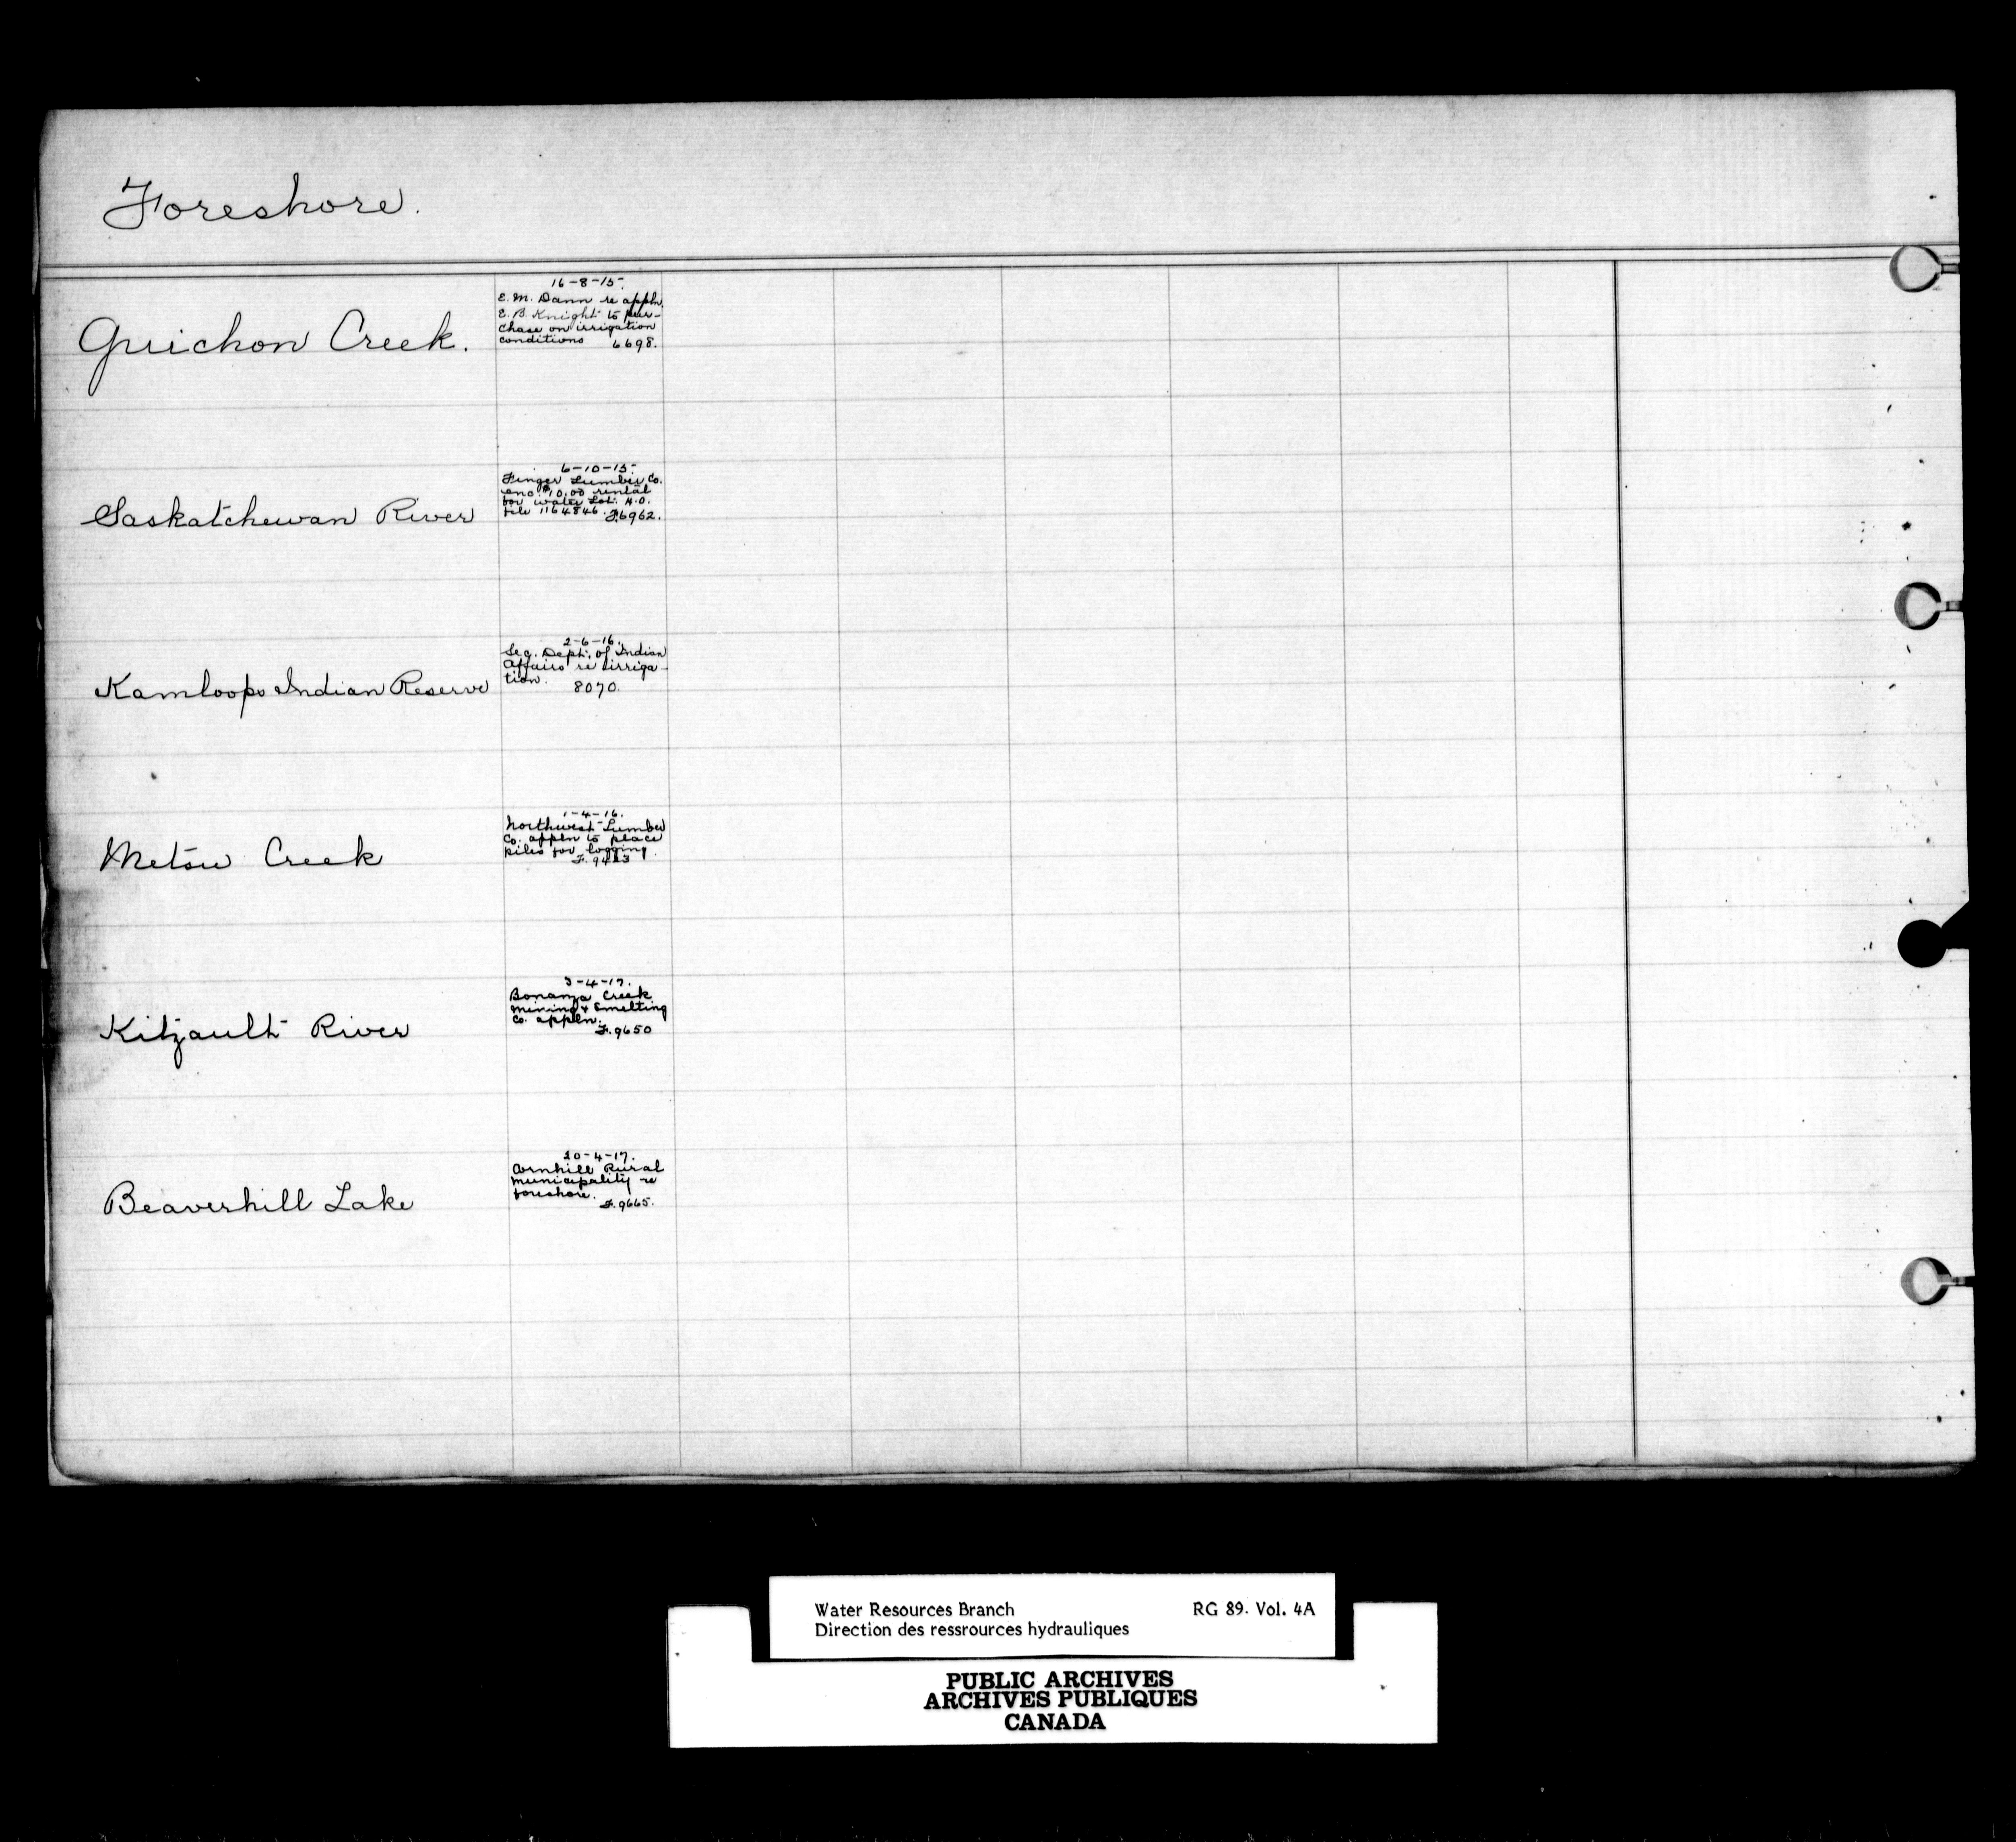 Foreshore.
Guichon Creek.
16-8-15.
E. M. Dann re appln.
E. B. Knight to pur-
chase on irrigation
conditions 6698.
Saskatchewan River
6-10-15.
Finger Lumber Co.
enc. $10.00 rental
for water Lot. H.O.
file 1164846. F.6962.
Kamloops Indian Reserve
2-6-16.
Sec. Dept. of Indian
Affairs re irriga-
tion. 8070.
Metsu Creek
1-4-16.
Northwest Lumber
Co. appln to place
piles for logging.
F. 9423
Kitzault River
3-4-17.
Bonanza Creek
Mining & Smelting
Co. appln.
F.9650
Beaverhill Lake
20-4-17.
Cornhill Rural
Municipality re
foreshore.
F.9665.
Water Resources Branch RG 89. Vol. 4A
Direction des ressrources hydrauliques
PUBLIC ARCHIVES
ARCHIVES PUBLIQUES
CANADA